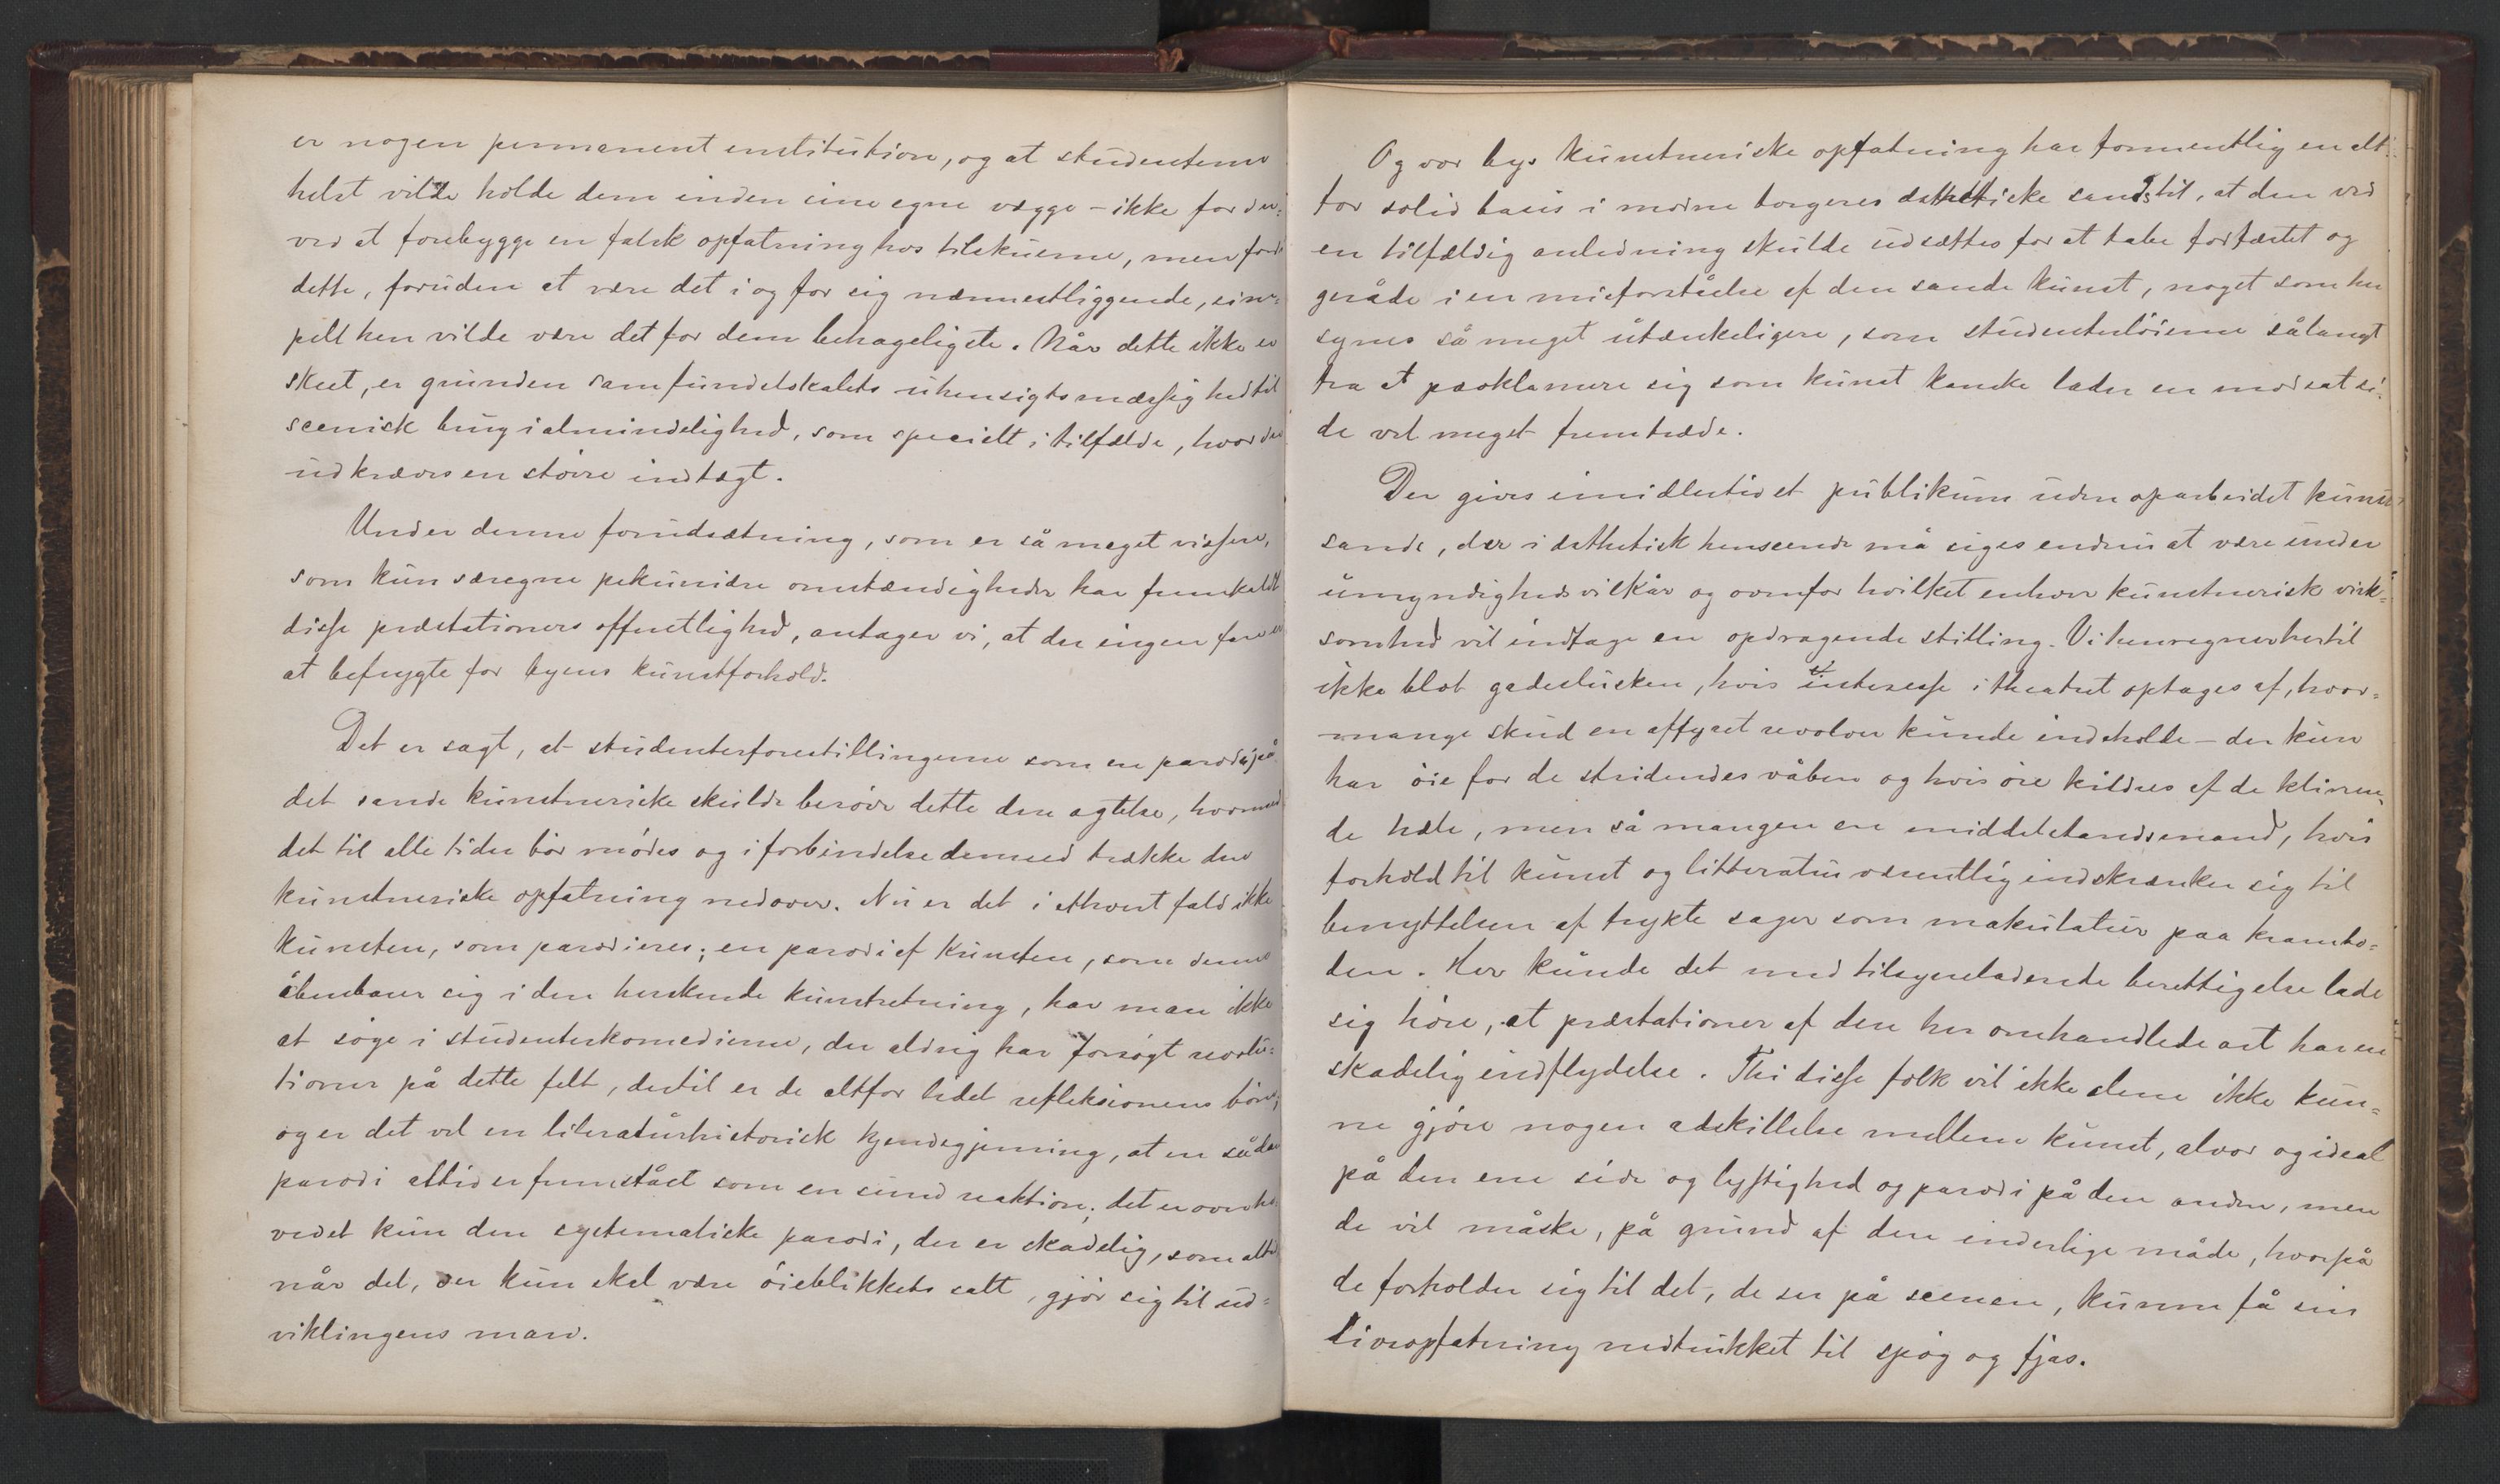 er nogen permanent institution, og at studenterne
helst vilde holde dem inden sine egne vægge – ikke for der=
ved at forebygge en falsk opfatning hos tilskuerne, men fordi
dette, foruden at være det i og for sig nærmestliggende, sim=
pelt hen vilde være det for dem behageligste. Når dette ikke er
skeet, er grunden samfundslokalets uhensigtsmæssighed til
scenisk brug i almindelighed, som specielt i tilfælde, hvor der
udkræves en større indtægt.
Under denne forudsætning, som er så meget vissere,
som kun særegne pekuniære omstændigheder har fremkaldt
disse præstationers offentlighed, antager vi, at der ingen fare er
at befrygte for byens kunstforhold.
Det er sagt, at studenterforestillingerne som en parodi på
det sande kunstneriske skulde berøve dette den agtelse, hvormed
det til alle tider bør mødes og i forbindelse dermed trække den
kunstneriske opfatning nedover. Nu er det i ethvert fald ikke
kunsten, som parodieres; en parodi af kunsten, som denne
åbenbarer sig i den herskende kunstretning, har man ikke
at søge i studenterkomedierne, der aldrig har forsøgt revolu=
tioner på dette felt, dertil er de altfor lidet refleksionens børn;
og er det vel en literaturhistorisk kjendsgjerning, at en sådan
parodi altid er fremstået som en sund reaktion; det er overho=
vedet kun den systematiske parodi, der er skadelig, som altid
når det, der kun skal være øieblikkets salt, gjør sig til ud=
viklingens marv.
Og vor bys kunstneriske opfatning har formentlig en alt=
for solid basis i mine borgeres æsthetiske sands til, at den ved
en tilfældig anledning skulde udsættes for at tabe forfæstet og
geråde i en misforståelse af den sande kunst, noget som her
synes så meget utænkeligere, som studenterløierne sålangt
fra at proklamere sig som kunst kanske lader en modsat si=
de vel meget fremtræde.
Der gives imidlertid et publikum uden oparbeidet kunst=
sands, der i æsthetisk henseende må siges endnu at være under
umyndighedsvilkår og ovenfor hvilket enhver kunstnerisk virk=
somhed vil indtage en opdragende stilling. Vi henregner hertil
ikke blot gadeslusken, hvis interesse i theatret optages af, hvor=
mange skud en affyret revolver kunde indeholde – der kun
har øie for de stridendes våben og hvis øre kildres af de klirren=
de hæle, men så mangen en middelstandsmand, hvis
forhold til kunst og litteratur væsentlig indskrænker sig til
benyttelsen af trykte sager som makulatur paa krambo=
den. Her kunde det med tilsyneladende berettigelse lade
sig høre, at præstationer af den her omhandlede art har en
skadelig indflydelse. Thi disse folk vil ikke alene ikke kun=
ne gjøre nogen adskillelse mellem kunst, alvor og ideal
på den ene side og lystighed og parodi på den anden, men
de vil måske, på grund af den inderlige måde, hvorpå
de forholder sig til det, de ser på scenen, kunne få sin
livsopfatning nedtrukket til spøg og fjas.